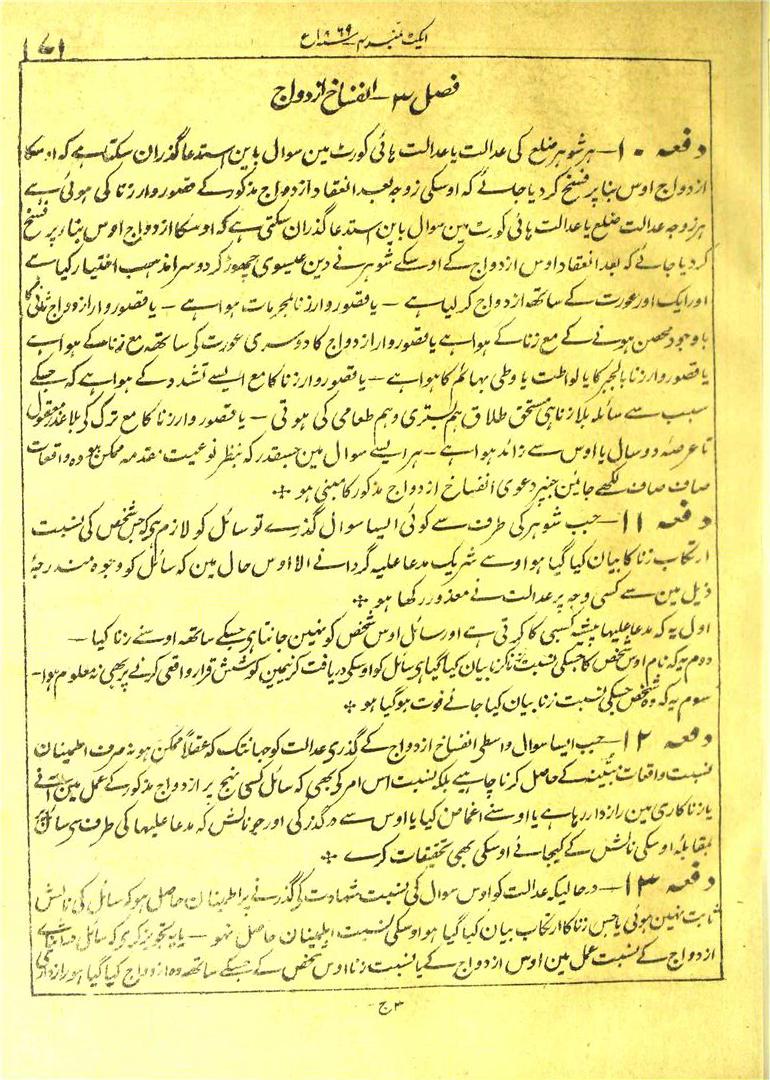 ایکٹ نمبر ۴ سنہ ۱۸۶۹ع
فصل ۳ - انفساخ ازدواج
دفعہ ۱۰ - ہر شوہر ضلع کی عدالت یا عدالت ہائی کورٹ مین سوال باین استدعا گذران سکتا ہے کہ اوسکا
ازدواج اوس بنا پر فسخ کر دیا جائے کہ اوسکی زوجہ بعد انعقاد ازدواج مذکور کے قصور وار زنا کی ہوئی ہے
ہر زوجہ عدالت ضلع یا عدالت ہائی کورٹ مین سوال باین استدعا گذران سکتی ہے کہ اوسکا ازدواج اوس بناء پر فسخ
کر دیا جائے کہ بعد انعقاد اوس ازدواج کے اوسکے شوہر نے دین عیسوی چھوڑ کر دوسرا مذہب اختیار کیا ہے
اور ایک اور عورت کے ساتھ ازدواج کر لیا ہے - یا قصور وار زنا بمحرمات ہوا ہے - یا قصور وار ازدواج ثانی کا
باوجود محصن ہونے کے مع زنا کے ہوا ہے یا قصور وار ازدواج کا دوسری عورت کی ساتھ مع زنا کے ہوا ہے
یا قصور وار زنا بالجبر کا یا لواطت یا وطی بہائم کا ہوا ہے - یا قصور وار زنا کا مع ایسے تشدد کے ہوا ہے کہ جسکے
سبب سے سائلہ بلا زنا ہی مستحق طلاق ہم بستری و ہم طعامی کی ہوتی - یا قصور وار زنا کا مع ترک کی بلا عذر معقول
تا عرصہ دو سال یا اوس سے زائد ہوا ہے - ہر ایسے سوال مین جسقدر کہ بنظر نوعیت مقدمہ ممکن ہو وہ واقعات
صاف صاف لکھے جائین جنپر دعوی انفساخ ازدواج مذکور کا مبنی ہو ÷
دفعہ ۱۱ - جب شوہر کی طرف سے کوئی ایسا سوال گذرے تو سائل کو لازم ہی کہ جس شخص کی نسبت
ارتکاب زنا کا بیان کیا گیا ہو اوسے شریک مدعا علیہ گردانے الا اوس حال مین کہ سائل کو وجوہ مندرجۂ
ذیل مین سے کسی وجہ پر عدالت نے معذور رکھا ہو ÷
اول یہ کہ مدعا علیہا پیشہ کسبی کا کرتی ہے اور سائل اوس شخص کو نہین جانتا ہی جسکے ساتھ اوسنے زنا کیا -
دوم یہ کہ نام اوس شخص کا جسکی نسبت زنا کرنا بیان کیا گیا ہی سائل کو اوسکی دریافت کرنیمین کوشش قرار واقعی کرنے پر بھی نہ معلوم ہوا -
سوم یہ کہ وہ شخص جسکی نسبت زنا بیان کیا جائے فوت ہو گیا ہو ÷
دفعہ ۱۲ - جب ایسا سوال واسطی انفساخ ازدواج کے گذری عدالت کو جہانتک کہ عقلاً ممکن ہو نہ صرف اطمینان
نسبت واقعات مبینہ کے حاصل کرنا چاہیے بلکہ نسبت اس امر کی بھی کہ سائل کسی نہج پر ازدواج مذکور کے عمل مین آنے
یا زناکاری مین رازدار رہا ہے یا اوسنے اغماض کیا یا اوس سے درگذر کی اور جو نالش کہ مدعا علیہا کی طرف سی سائل پر
بمقابلہ اوسکی نالش کے کیجائے اوسکی بھی تحقیقات کرے ÷
دفعہ ۱۳ - درحالیکہ عدالت کو اوس سوال کی نسبت شہادت کی گذرنے پر اطمینان حاصل ہو کہ سائل کی نالش
ثابت نہین ہوئی یا جس زنا کا ارتکاب بیان کیا گیا ہو اوسکی نسبت اطمینان حاصل نہو - یا یہ تجویز کری کہ سائل
ازدواج کے نسبت عمل مین اوس ازدواج کے یا نسبت زنا اوس شخص کے جسکے ساتھ وہ ازدواج کیا گیا ہو رازدار
۳ ج